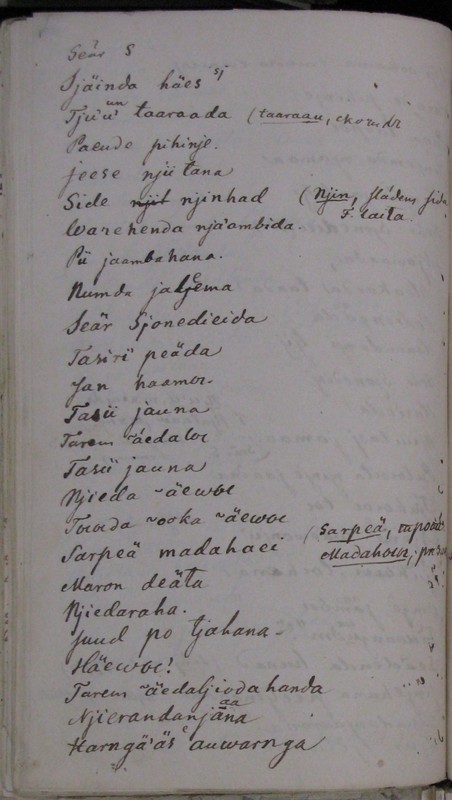 Seär S
Sjäinda häes sj
Tju'u' un taaraada (taaraau,
Paeude pihinje.
jeese njütana
Side njit njinhad (Njin, slädens sida
F. laita
Warehenda njä'ambida.
Pü jaambahana.
Numda jaljema
Seär Sjonedieida
Tasirï peäda
Jan haamor
Tasü jauna
Tarem äedawe
Tasü jauna
Njieda äewoe
Towda ooka äewoe
Sarpeä madahaei (Sarpeä,
Maron deäta Madahoen,
Njiedaraha.
juud po tjahana
Häewoe!
Tarem äedaljiodahanda
Njierandanjäna aa
Harngä'äs e auwarnga